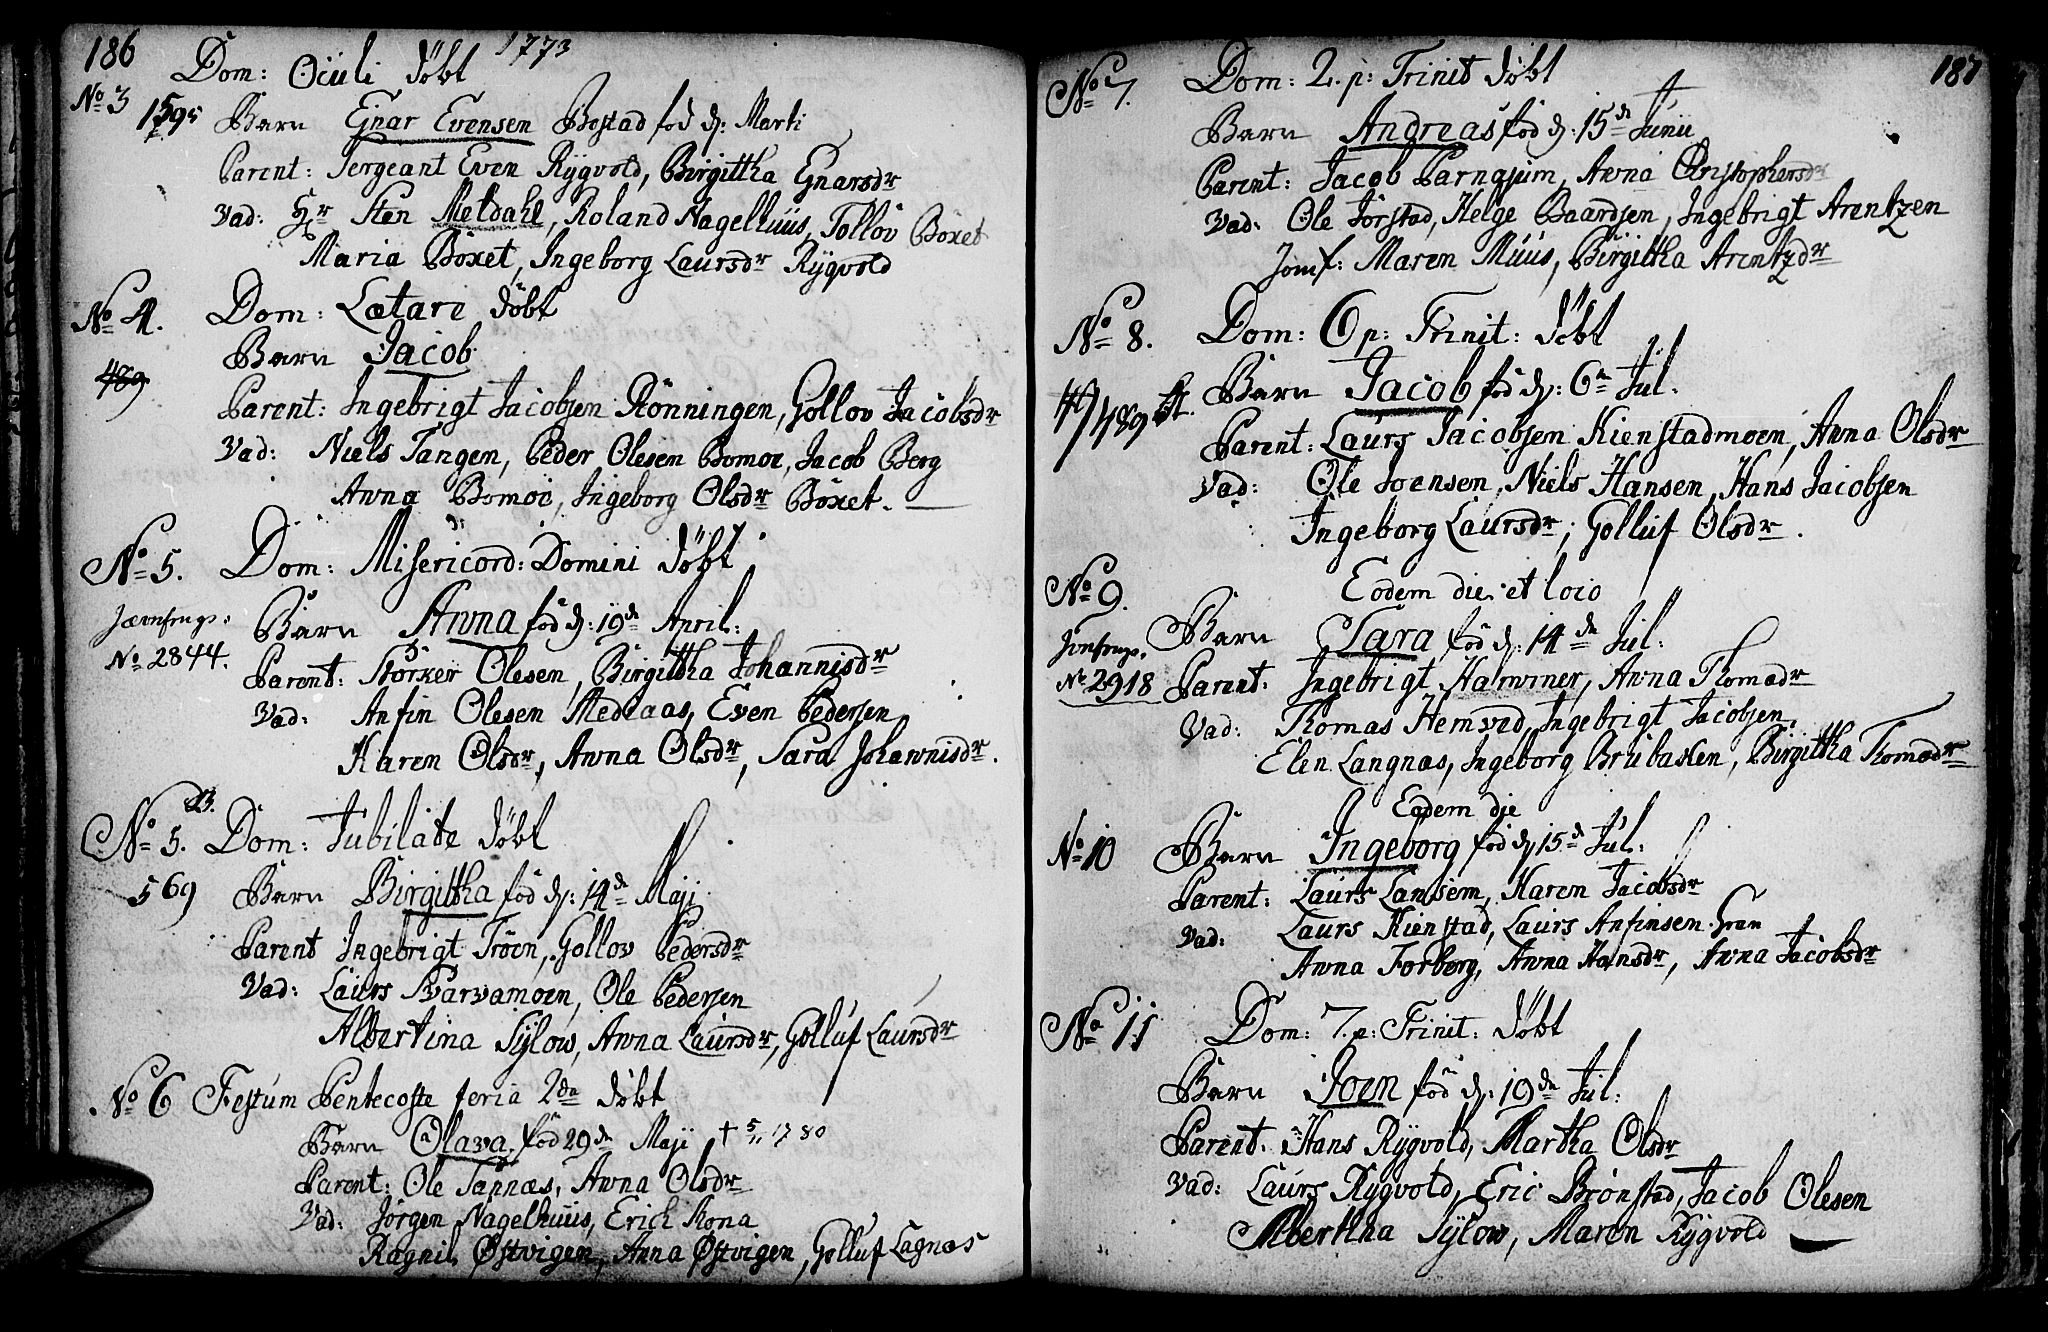 186
1773
Dom: Oculi döbt
No 3
1595
Barn Ejnar Evensen Bostad föd d: Marti
Parent: Sergeant Even Rÿgvold, Birgittha Ejnarsdr
Vad: Hr Sten Meldahl, Roland Nagelhuus, Tollöv Böxet
Maria Böxet, Ingeborg Laursdr Rÿgvold
No 4.
Dom: Lætare döbt
Barn Jacob
489
Parent: Ingebrigt Jacobsen Rönningen, Gollov Jacobsdr
Vad: Niels Tangen, Peder Olesen Bomoe, Jacob Berg
Anna Bomoe, Ingeborg Olsdr Böxet.
No 5.
Dom: Misericord: Domini döbt
Jernfengs:
No 2844.
Barn Anna föd d: 19de April:
Parent: Störker Olesen, Birgittha Johannisdr
Vad: Anfin Olesen Medaas, Even Pedersen
Karen Olsdr, Anna Olsdr, Sara Johannisdr.
No 5.
Dom: Jubilate döbt
569
Barn Birgittha föd d: 14de Maji
Parent Ingebrigt Tröen, Gollov Pedersdr
Vad: Laurs Qvarvamoen, Ole Pedersen
Albertina Sÿlow, Anna Laursdr, Golluf Laursdr
No 6
Festum Pentecoste feria 2da döbt
Barn Olava föd 29de Maji † 5/11 1780
Parent: Ole Sannæs, Anna Olsdr
Vad: Jörgen Nagelhuus, Erich Kona
Ragnil Østvigen, Anna Østvigen, Golluf Lagnæs
187
No 7.
Dom: 2. p: Trinit döbt
Barn Andreas föd d: 15de Junii †
Parent: Jacob Parnajum, Anna Christophersdr
Vad: Ole Jörstad, Helge Baardsen, Ingebrigt Arentzen
Jomf: Maren Muus, Birgittha Arentzdr
No 8.
Dom: 6 p: Trinit: döbt
489
Barn Jacob föd d: 6te Jul:
Parent: Laurs Jacobsen Kienstadmoen, Anna Olsdr
Vad: Ole Joensen, Niels Hansen, Hans Jacobsen
Ingeborg Laursdr, Golluf Olsdr.
No 9.
Eodem die et loco
No 2918
Barn Sara föd d: 14de Jul:
Parent. Ingebrigt Halvviner, Anna Thomædr
Vad: Thomas Hemved, Ingebrigt Jacobsen,
Elen Langnæs, Ingeborg Brubakken, Birgittha Thomædr
Eodem die
No 10
Barn Ingeborg föd d 15de Jul:
Parent: Laurs Lansem, Karen Jacobsdr
Vad: Laurs Kienstad, Laurs Anfinsen Gran
Anna Forberg, Anna Hansdr, Anna Jacobsdr
No 11
Dom: 7. p: Trinit: döbt
Barn Joen föd d: 19de Jul:
Parent. Hans Rÿgvold, Martha Olsdr
Vad: Laurs Rÿgvold, Eric Brönstad, Jacob Olesen
Albertha Sÿlow, Maren Rÿgvold